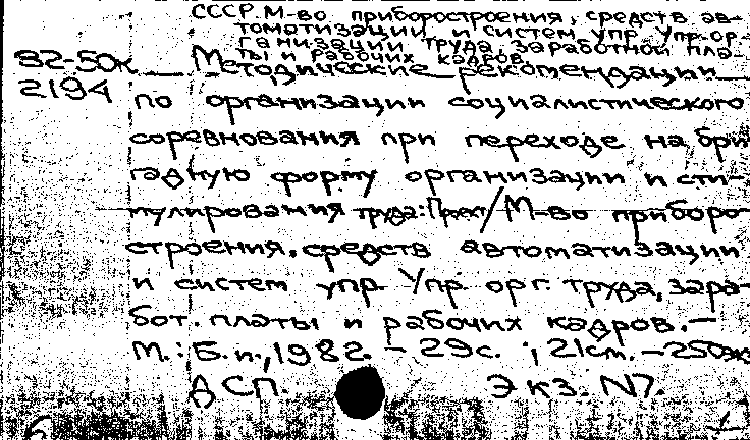 СССР. М-во приборостроения, средств ав-
томатизации и систем упр. Упр. ор-
ганизации труда, заработной пла-
ты и рабочих кадров.
82-50к Методические рекомендации
2194 по организации социалистического
соревнования при переходе на бри
гадную форму организации и сти-
мулирования труда: Проект / М-во приборо-
строения, средств автоматизации
и систем упр. Упр. орг. труда, зара-
бот. платы и рабочих кадров. —
М.: Б. и., 1982. - 29с. ; 21см. - 250экз
ДСП. Экз. N7.